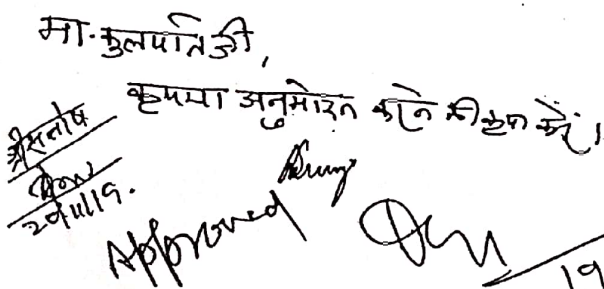 मा. कुलपति जी,
कृपया अनुमोदन करने की कृपा करें।
श्री संतोष
Approved
19